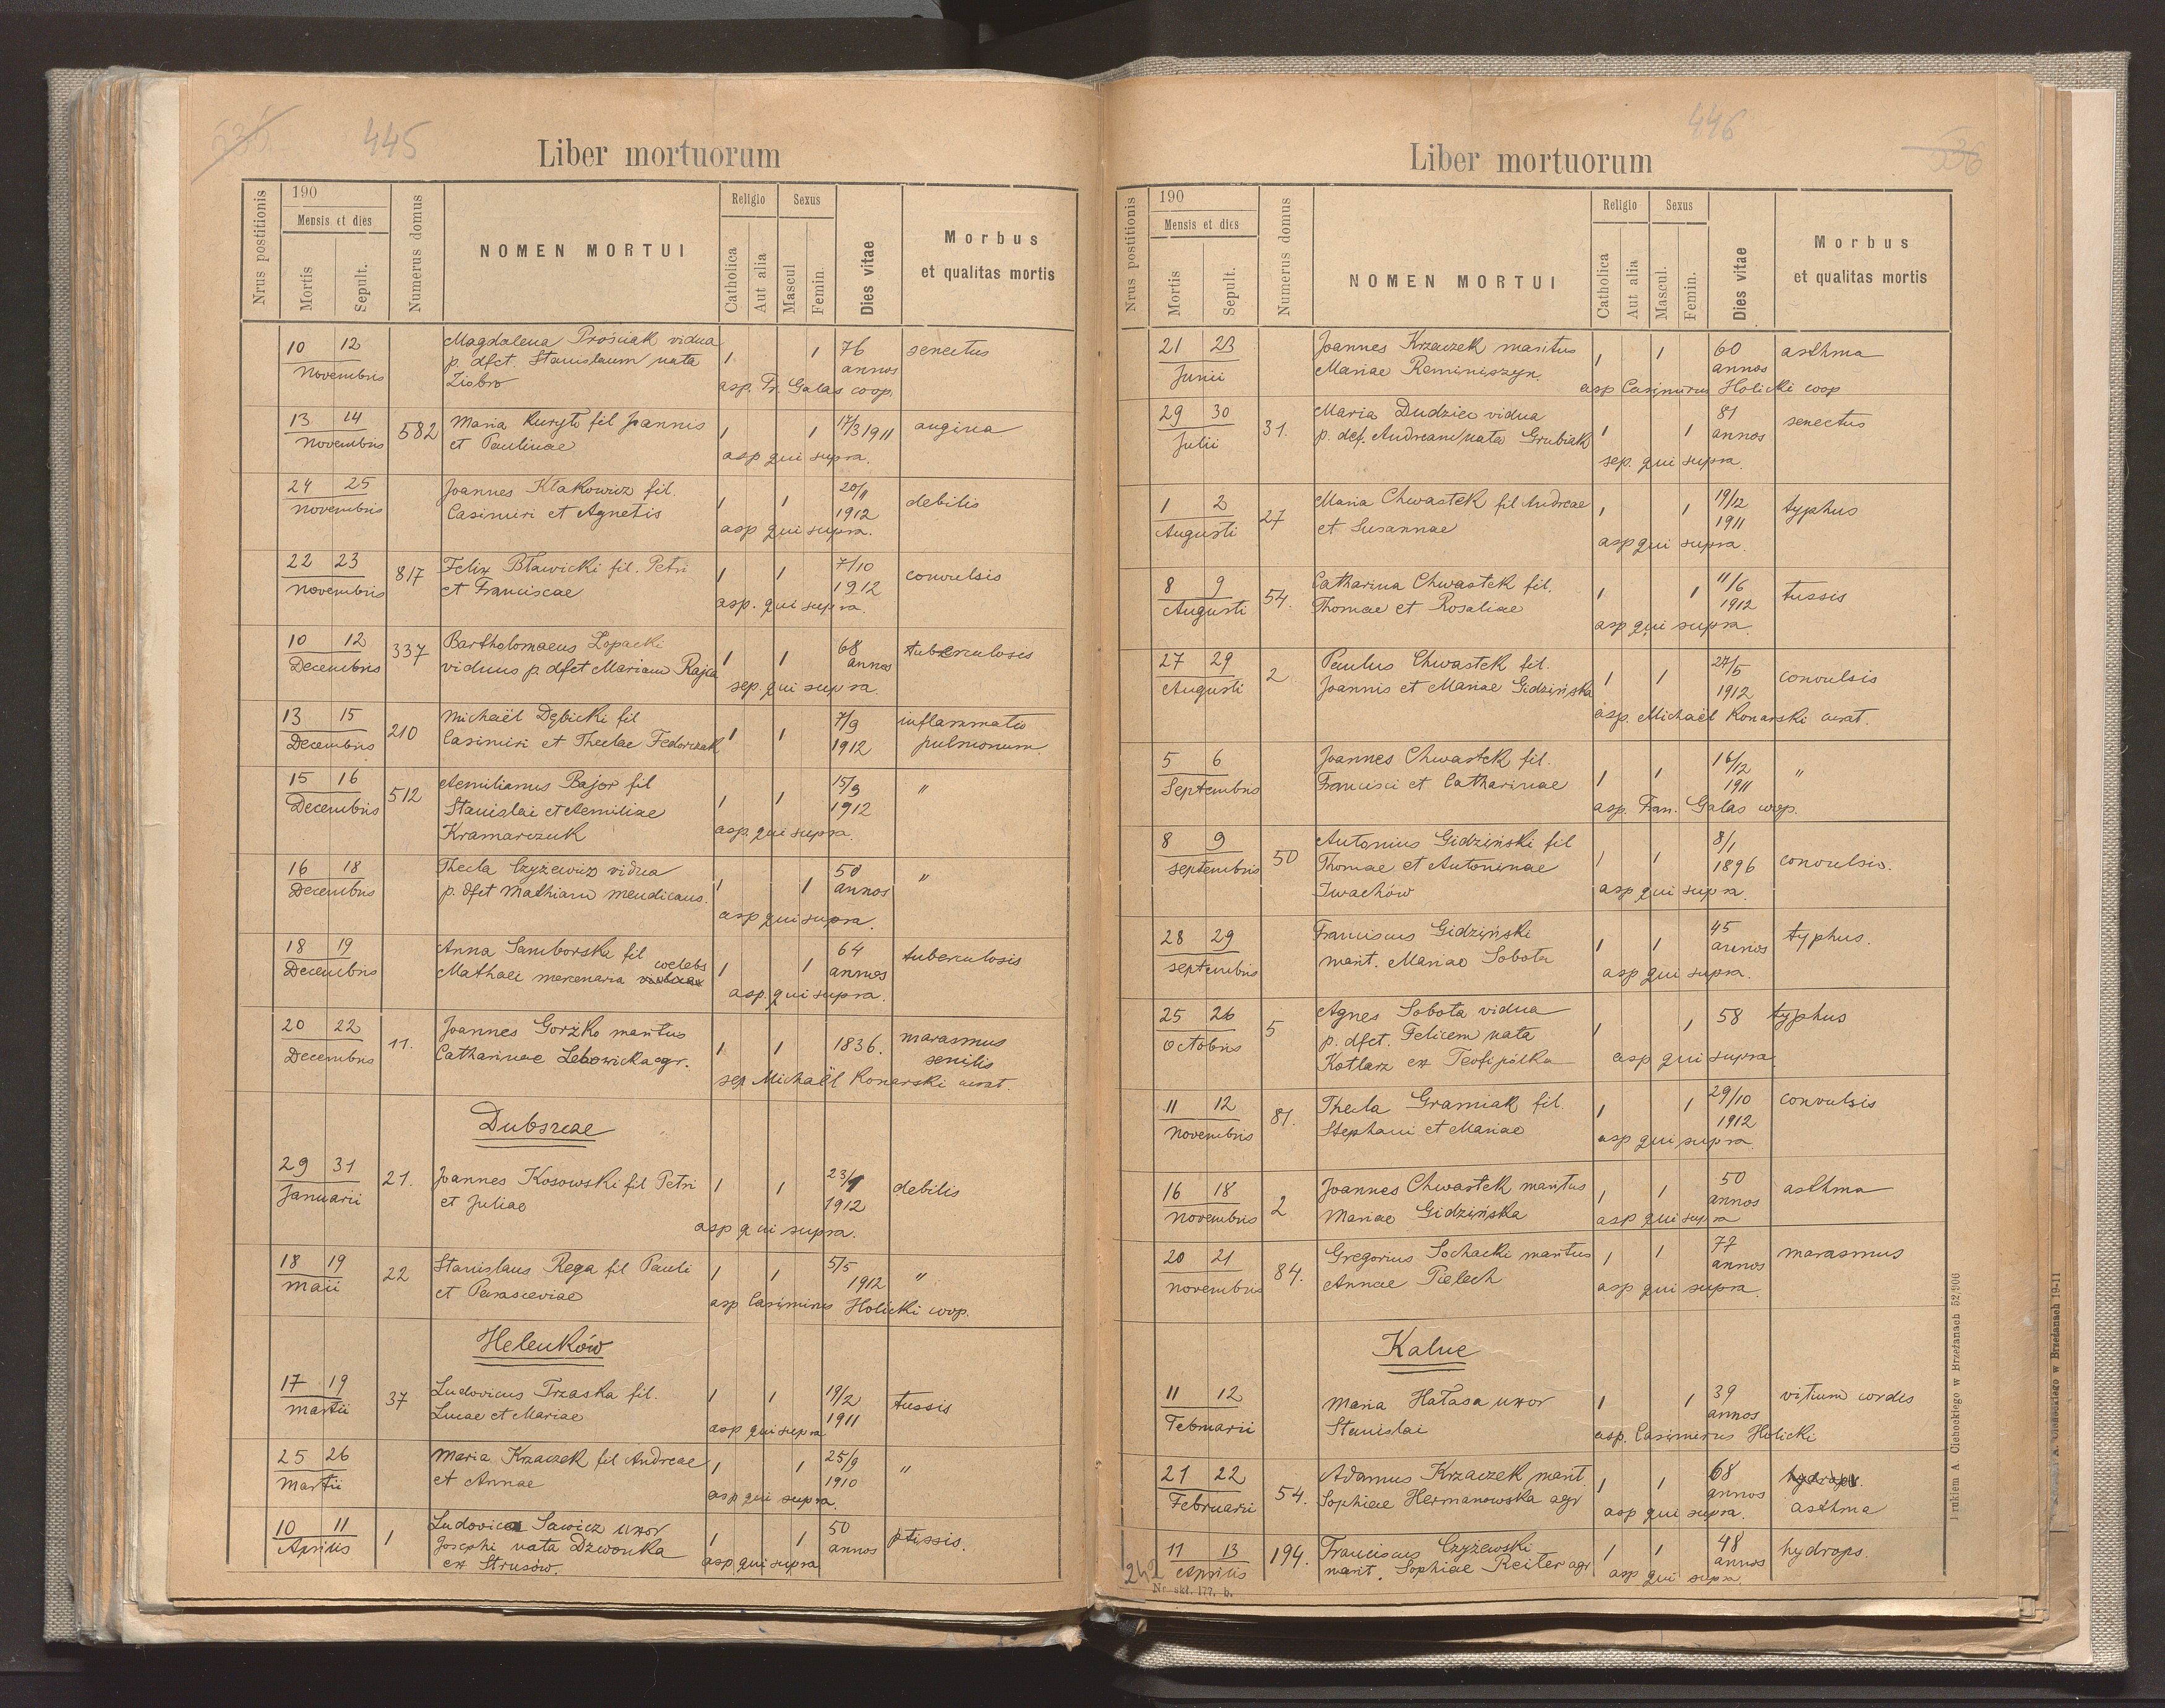 445
Liber mortuorum
Nrus postitionis
190
Mensis et dies
Mortis
Sepult.
Numerus domus
NOMEN MORTUI
Religio
Catholica
Aut alia
Sexus
Mascul
Femin.
Dies vitae
Morbus
et qualitas mortis
10 12 Novembris
Magdalena Prośniak vidua
p. dfct. Stanislaum nata
Ziobro
1 1 76 annos
senectus
asp. Fr. Galas coop.
13 14 Novembris 582
Maria Kuryło fil Joannis
et Paulinae
1 1 17/3 1911
angina
asp qui supra.
24 25 Novembris
Joannes Kłakowicz fil.
Casimiri et Agnetis
1 1 20/11 1912
debilis
asp qui supra.
22 23 Novembris 817
Felix Bławicki fil. Petri
et Franciscae
1 1 7/10 1912
convulsis
asp. qui supra.
10 12 Decembris 337
Bartholomaeus Łopacki
viduus p. dfct Mariam Rajca
1 1 68 annos
tuberculosis
sep. qui supra.
13 15 Decembris 210
Michaël Dębicki fil
Casimiri et Theclae Fedorczak
1 1 7/9 1912
inflammatio
pulmonum
15 16 Decembris 512
Aemilianus Bajor fil
Stanislai et Aemiliae
Kramarczuk
1 1 15/9 1912
"
asp. qui supra.
16 18 Decembris
Thecla Czyżewicz vidua
p. dfct Mathiam mendicans.
1 1 50 annos
"
asp qui supra.
18 19 Decembris
Anna Samborska fil
Mathaei mercenaria coelebs
1 1 64 annos
tuberculosis
asp. qui supra.
20 22 Decembris 11.
Joannes Gorżko maritus
Catharinae Lebowicka agr.
1 1 1836.
marasmus
senilis
sep Michaël Konarski curat.
Dubszcze
29 31 Januarii 21.
Joannes Kosowski fil Petri
et Juliae
1 1 23/1 1912
debilis
asp qui supra.
18 19 Maii 22
Stanislaus Rega fil Pauli
et Parasceviae
1 1 5/5 1912
"
asp Casimirus Holicki coop.
Helenków
17 19 Martii 37
Ludovicus Trzaska fil.
Lucae et Mariae
1 1 19/2 1911
tussis
asp qui supra
25 26 Martii
Maria Krzaczek fil Andreae
et Annae
1 1 25/9 1910
"
asp qui supra.
10 11 Aprilis 1
Ludovica Sawicz uxor
Josephi nata Dzwonka
ex Strusów.
1 1 50 annos
ptissis.
asp qui supra
446
536
Liber mortuorum
Nrus postitionis
190
Mensis et dies
Mortis
Sepult.
Numerus domus
NOMEN MORTUI
Religio
Catholica
Aut alia
Sexus
Mascul.
Femin.
Dies vitae
Morbus
et qualitas mortis
21 23 Junii
Joannes Krzaczek maritus
Mariae Reminiszyn.
1 1 60 annos
asthma
asp Casimirus Holicki coop
29 30 Julii 31.
Maria Dudziec vidua
p. def. Andream nata Grubiak
1 1 81 annos
senectus
sep. qui supra.
1 2 Augusti 27
Maria Chwastek fil Andreae
et Susannae
1 1 19/12 1911
typhus
asp qui supra.
8 9 Augusti 54.
Catharina Chwastek fil.
Thomae et Rosaliae
1 1 11/6 1912
tussis
asp qui supra.
27 29 Augusti 2
Paulus Chwastek fil.
Joannis et Mariae Gidzińska
1 1 27/5 1912
convulsis
asp. Michaël Konarski curat.
5 6 Septembris
Joannes Chwastek fil.
Francisci et Catharinae
1 1 16/12 1911
"
asp. Fran. Galas coop.
8 9 septembris 50
Antonius Gidziński fil
Thomae et Antoninae
Iwachów
1 1 8/1 1896
convulsis.
asp qui supra.
28 29 septembris
Franciscus Gidziński
marit. Mariae Sobota
1 1 45 annos
typhus.
asp qui supra.
25 26 Octobris 5
Agnes Sobota vidua
p. dfct. Felicem nata
Kotlarz ex Teofipółka
1 1 58
typhus
asp qui supra
11 12 Novembris 81.
Thecla Gramiak fil.
Stephani et Mariae
1 1 29/10 1912
convulsis
asp qui supra.
16 18 Novembris 2
Joannes Chwastek maritus
Mariae Gidzińska
1 1 50 annos
asthma
asp qui supra
20 21 Novembris 84.
Gregorius Sochacki maritus
Annae Pielech
1 1 77 annos
marasmus
asp qui supra.
Kalne
11 12 Februarii
Maria Hałasa uxor
Stanislai
1 1 39 annos
vitium cordis
asp. Casimirus Holicki
21 22 Februarii 54.
Adamus Krzaczek marit
Sophiae Hermanowska agr
1 1 68 annos
asthma
asp qui supra.
11 13 Aprilis 194.
Franciscus Czyżewski
marit. Sophiae Reiter agr
1 1 48 annos
hydrops.
asp qui supra.
242
Nr. skł. 177. b.
Drukiem A. Cichockiego w Brzeżanach 52,906
A. Cichockiego w Brzeżanach 19-11